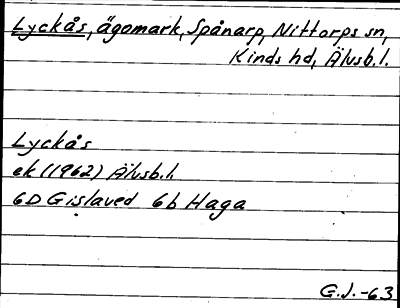 Lyckås, ägomark, Spånarp, Nittorps sn,
Kinds hd, Älvsb.l.
Lyckås
ek (1962) Älvsb.l.
6D Gislaved 6b Haga
G.J.-63